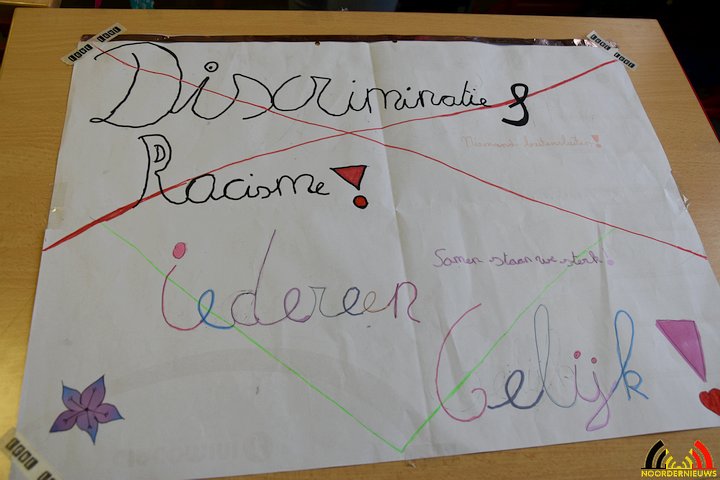 Discriminatie &
Niemand buitensluiten!
Racisme!
Samen staan we sterk!
iedereen
Gelijk!
NOORDERNIEUWS